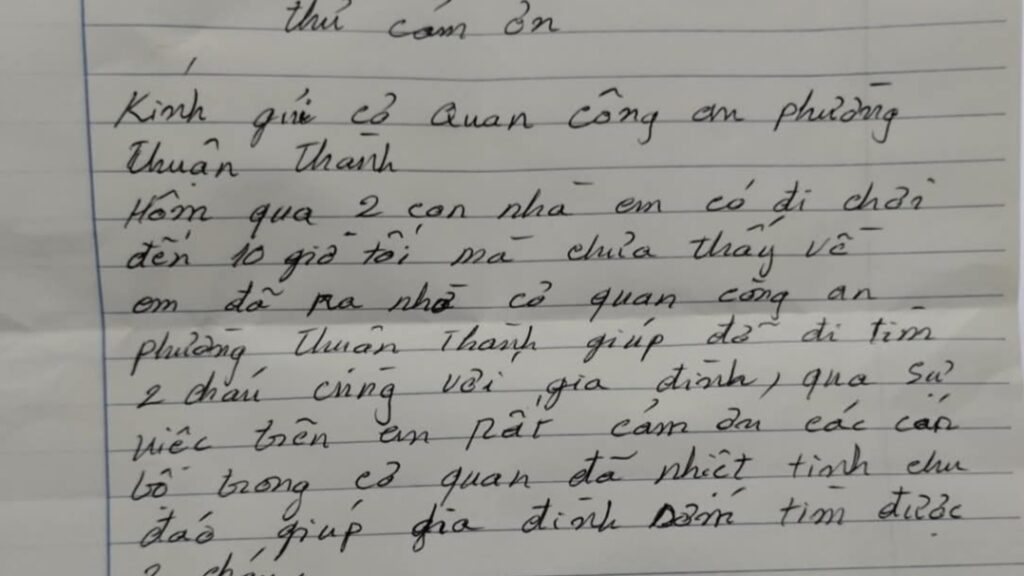 thư cám ơn
Kính gửi cơ quan công an phường
Thuận Thành
Hôm qua 2 con nhà em có đi chơi
đến 10 giờ tối mà chưa thấy về
em đã ra nhờ cơ quan công an
phường Thuận Thành giúp đỡ đi tìm
2 cháu cùng với gia đình, qua sự
việc trên em rất cám ơn các cán
bộ trong cơ quan đã nhiệt tình chu
đáo giúp gia đình sớm tìm được
2 cháu.